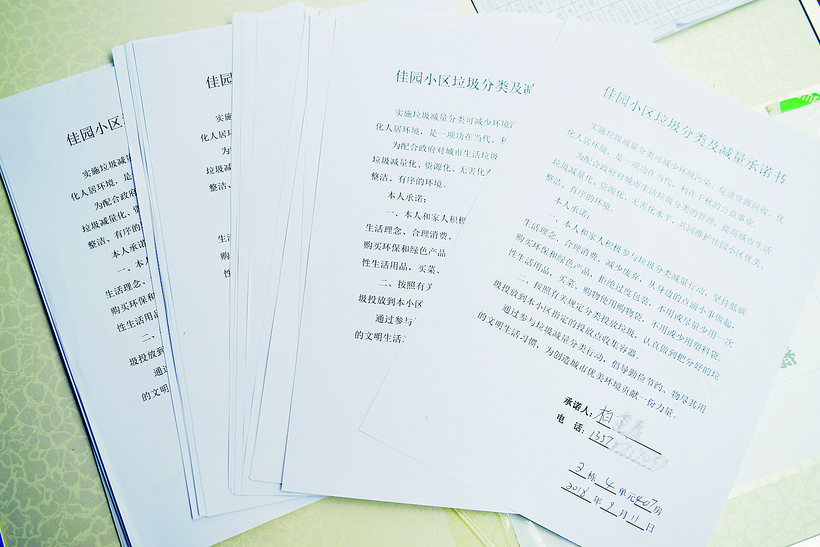 佳园小区
实施垃圾减量
化人居环境，是
为配合政府
垃圾减量化、
整洁、有序的
本人承诺
一、本人
生活理念、
购买环保和
性生活用品
二、
圾投放到
通过
的文明
佳园
实施
化人居
为
垃圾减
整洁、
生活
购
性
佳园小区垃圾分类及减
实施垃圾减量分类可减少环境
化人居环境，是一项功在当代、利
为配合政府对城市生活垃圾
垃圾减量化、资源化、无害化水
整洁、有序的环境。
本人承诺：
一、本人和家人积极
生活理念、合理消费、
购买环保和绿色产品
性生活用品，买菜、
二、按照有关
圾投放到本小区
通过参与
的文明生活
佳园小区垃圾分类及减量承诺书
实施垃圾减量分类可减少环境污染，促进资源回收，优
化人居环境，是一项功在当代、利在千秋的公益事业。
为配合政府对城市生活垃圾分类的管理，提高城市生活
垃圾减量化、资源化、无害化水平，共同维护佳园小区优美、
整洁、有序的环境。
本人承诺：
一、本人和家人积极参与垃圾分类减量行动，坚持低碳
生活理念、合理消费、减少废弃，从身边的点滴小事做起，
购买环保和绿色产品，拒绝过度包装，不用或尽量少用一次
性生活用品，买菜、购物使用购物袋，不用或少用塑料袋。
二、按照有关规定分类投放垃圾，认真做到把分好的垃
圾投放到本小区指定的投放点收集容器。
通过参与垃圾减量分类行动，倡导勤俭节约、物尽其用
的文明生活习惯，为创造城市优美环境贡献一份力量。
承诺人：柏
电 话：1357
2栋4单元407房
2018年9月11日